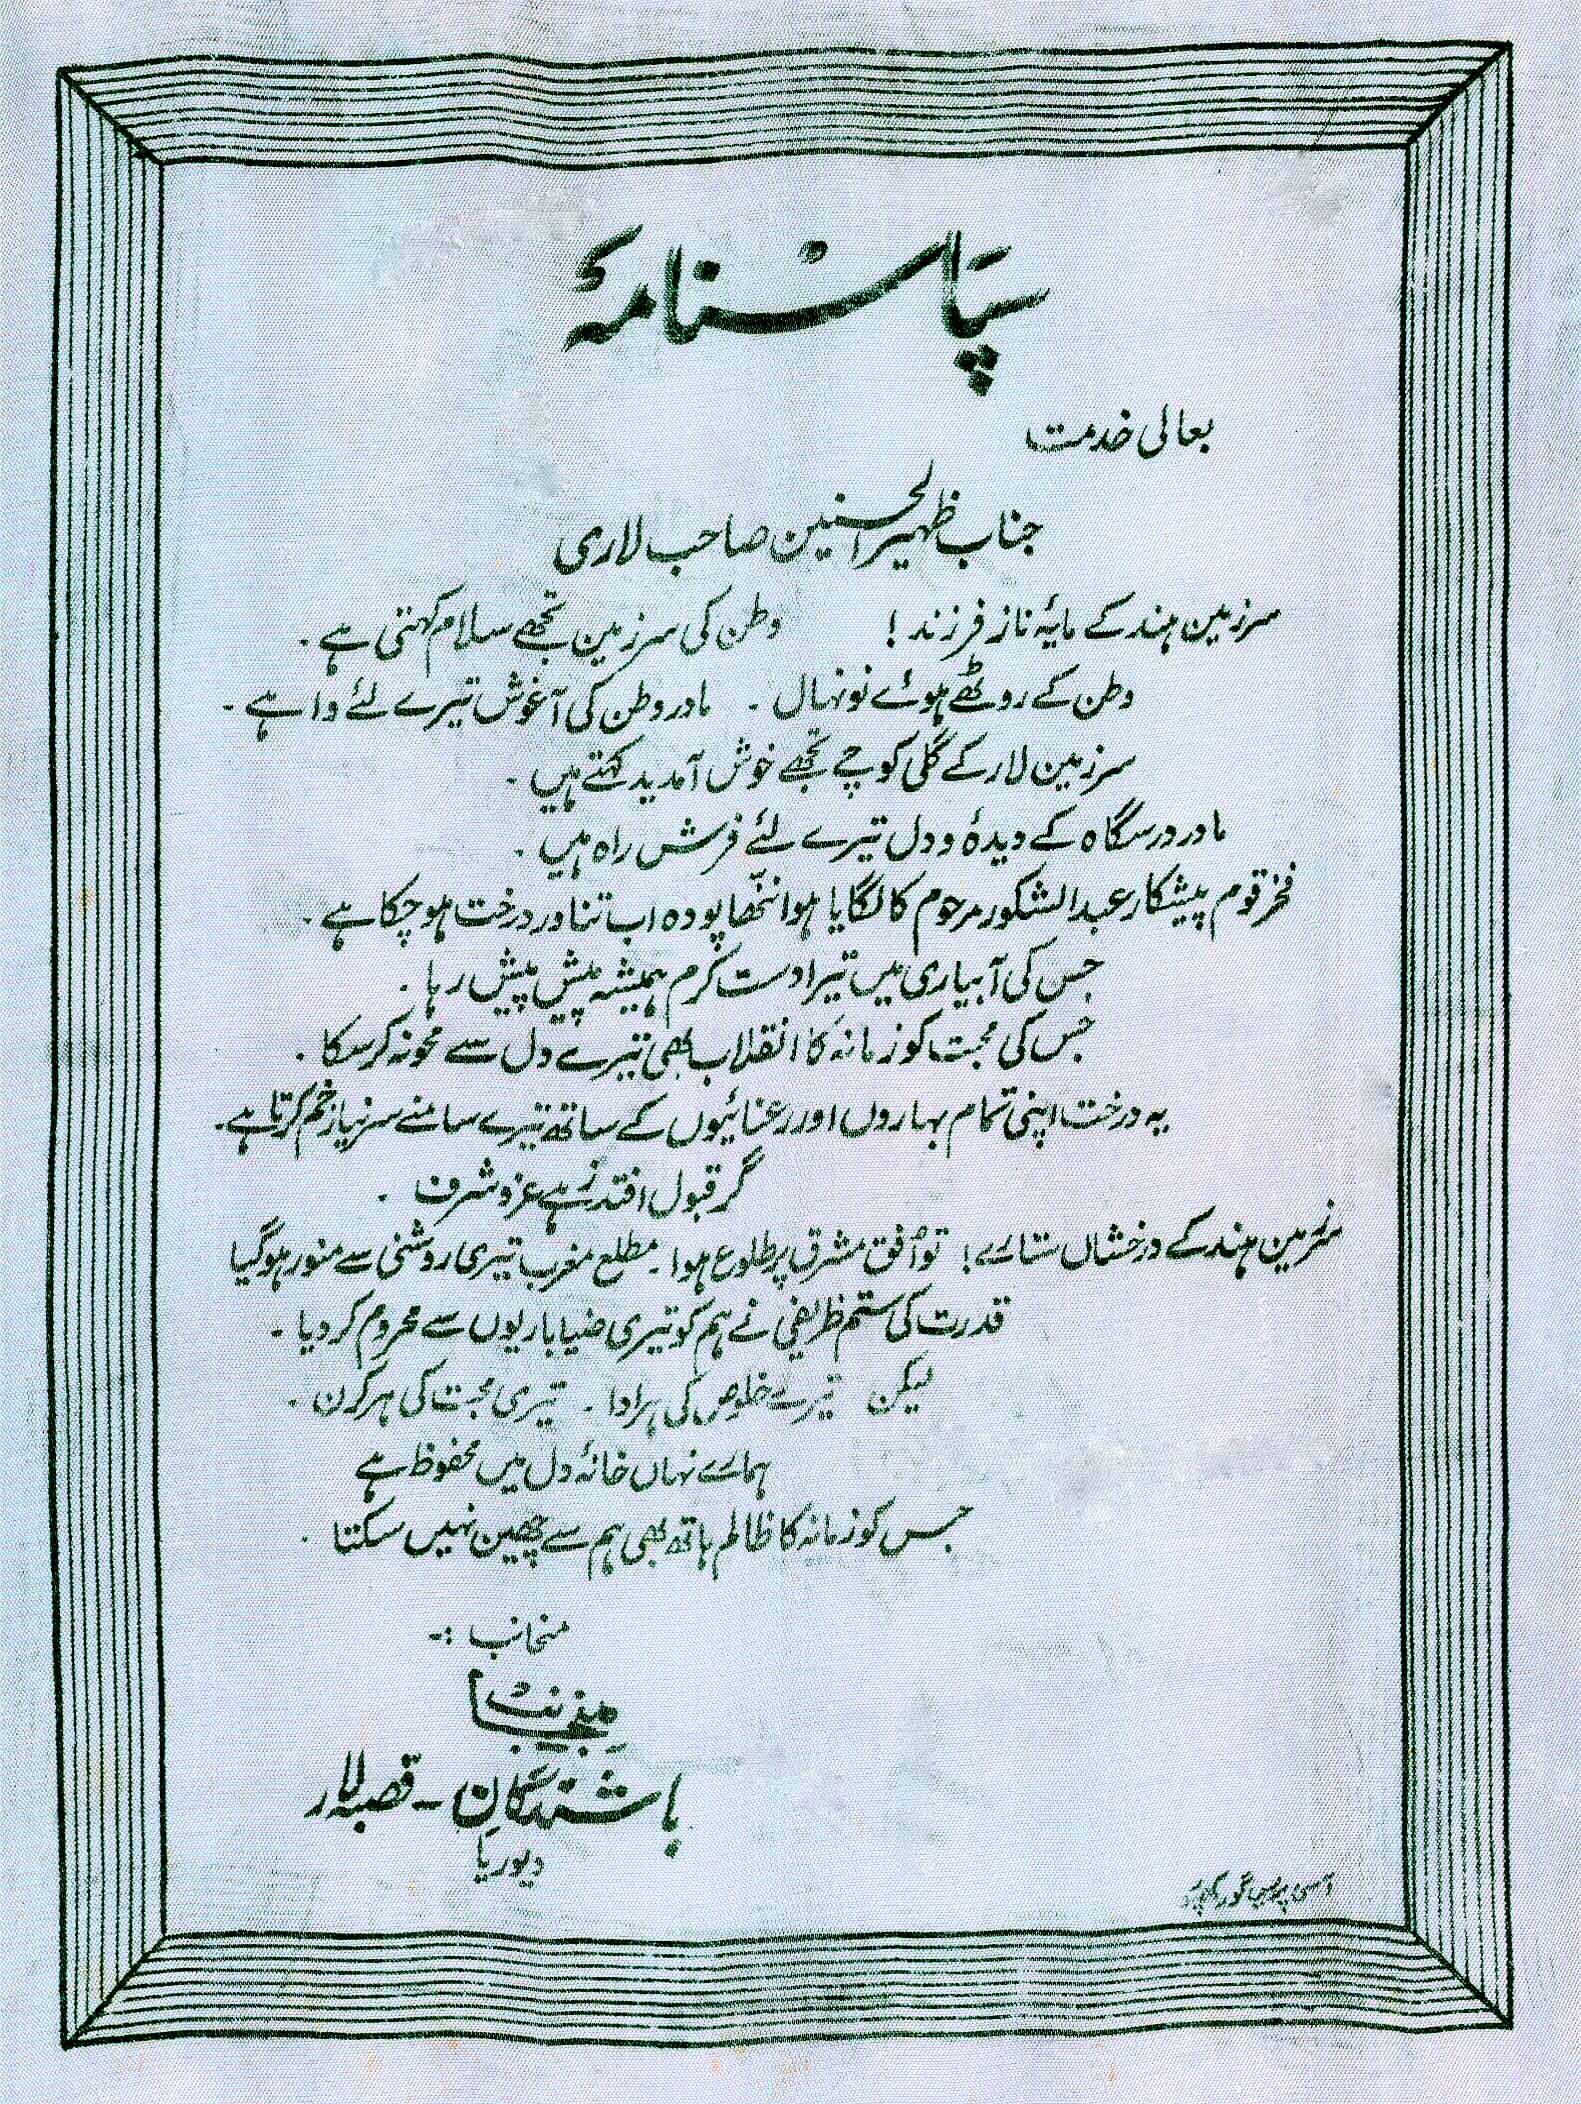 سپاسنامۂ
بعالی خدمت
جناب ظہیرالحسنین صاحب لاری
سرزمین ہند کے مایۂ ناز فرزند! وطن کی سرزمین تجھے سلام کہتی ہے ۔
وطن کے روٹھے ہوئے نونہال ۔ مادر وطن کی آغوش تیرے لئے وا ہے ۔
سرزمین لار کے گلی کوچے تجھے خوش آمدید کہتے ہیں ۔
مادر درسگاہ کے دیدۂ و دل تیرے لئے فرش راہ ہیں ۔
فخر قوم پیشکار عبدالشکور مرحوم کا لگایا ہوا ننھّا پودہ اب تناور درخت ہو چکا ہے ۔
جس کی آبیاری میں تیرا دست کرم ہمیشہ پیش پیش رہا ۔
جس کی محبت کو زمانہ کا انقلاب بھی تیرے دل سے محو نہ کر سکا ۔
یہ درخت اپنی تمام بہاروں اور رعنائیوں کے ساتھ تیرے سامنے سر نیاز خم کرتا ہے ۔
گر قبول افتد زہے عز و شرف ۔
سرزمین ہند کے درخشاں ستارے! تو اُفق مشرق پر طلوع ہوا ۔ مطلع مغرب تیری روشنی سے منور ہو گیا
قدرت کی ستم ظریفی نے ہم کو تیری ضیا باریوں سے محروم کر دیا ۔
لیکن تیرے خلوص کی ہر ادا ۔ تیری محبت کی ہر کرن ۔
ہمارے نہاں خانۂ دل میں محفوظ ہے
جس کو زمانہ کا ظالم ہاتھ بھی ہم سے چھین نہیں سکتا ۔
منجانب :-
منجانب
باشندگانِ - قصبہ لار
دیوریا